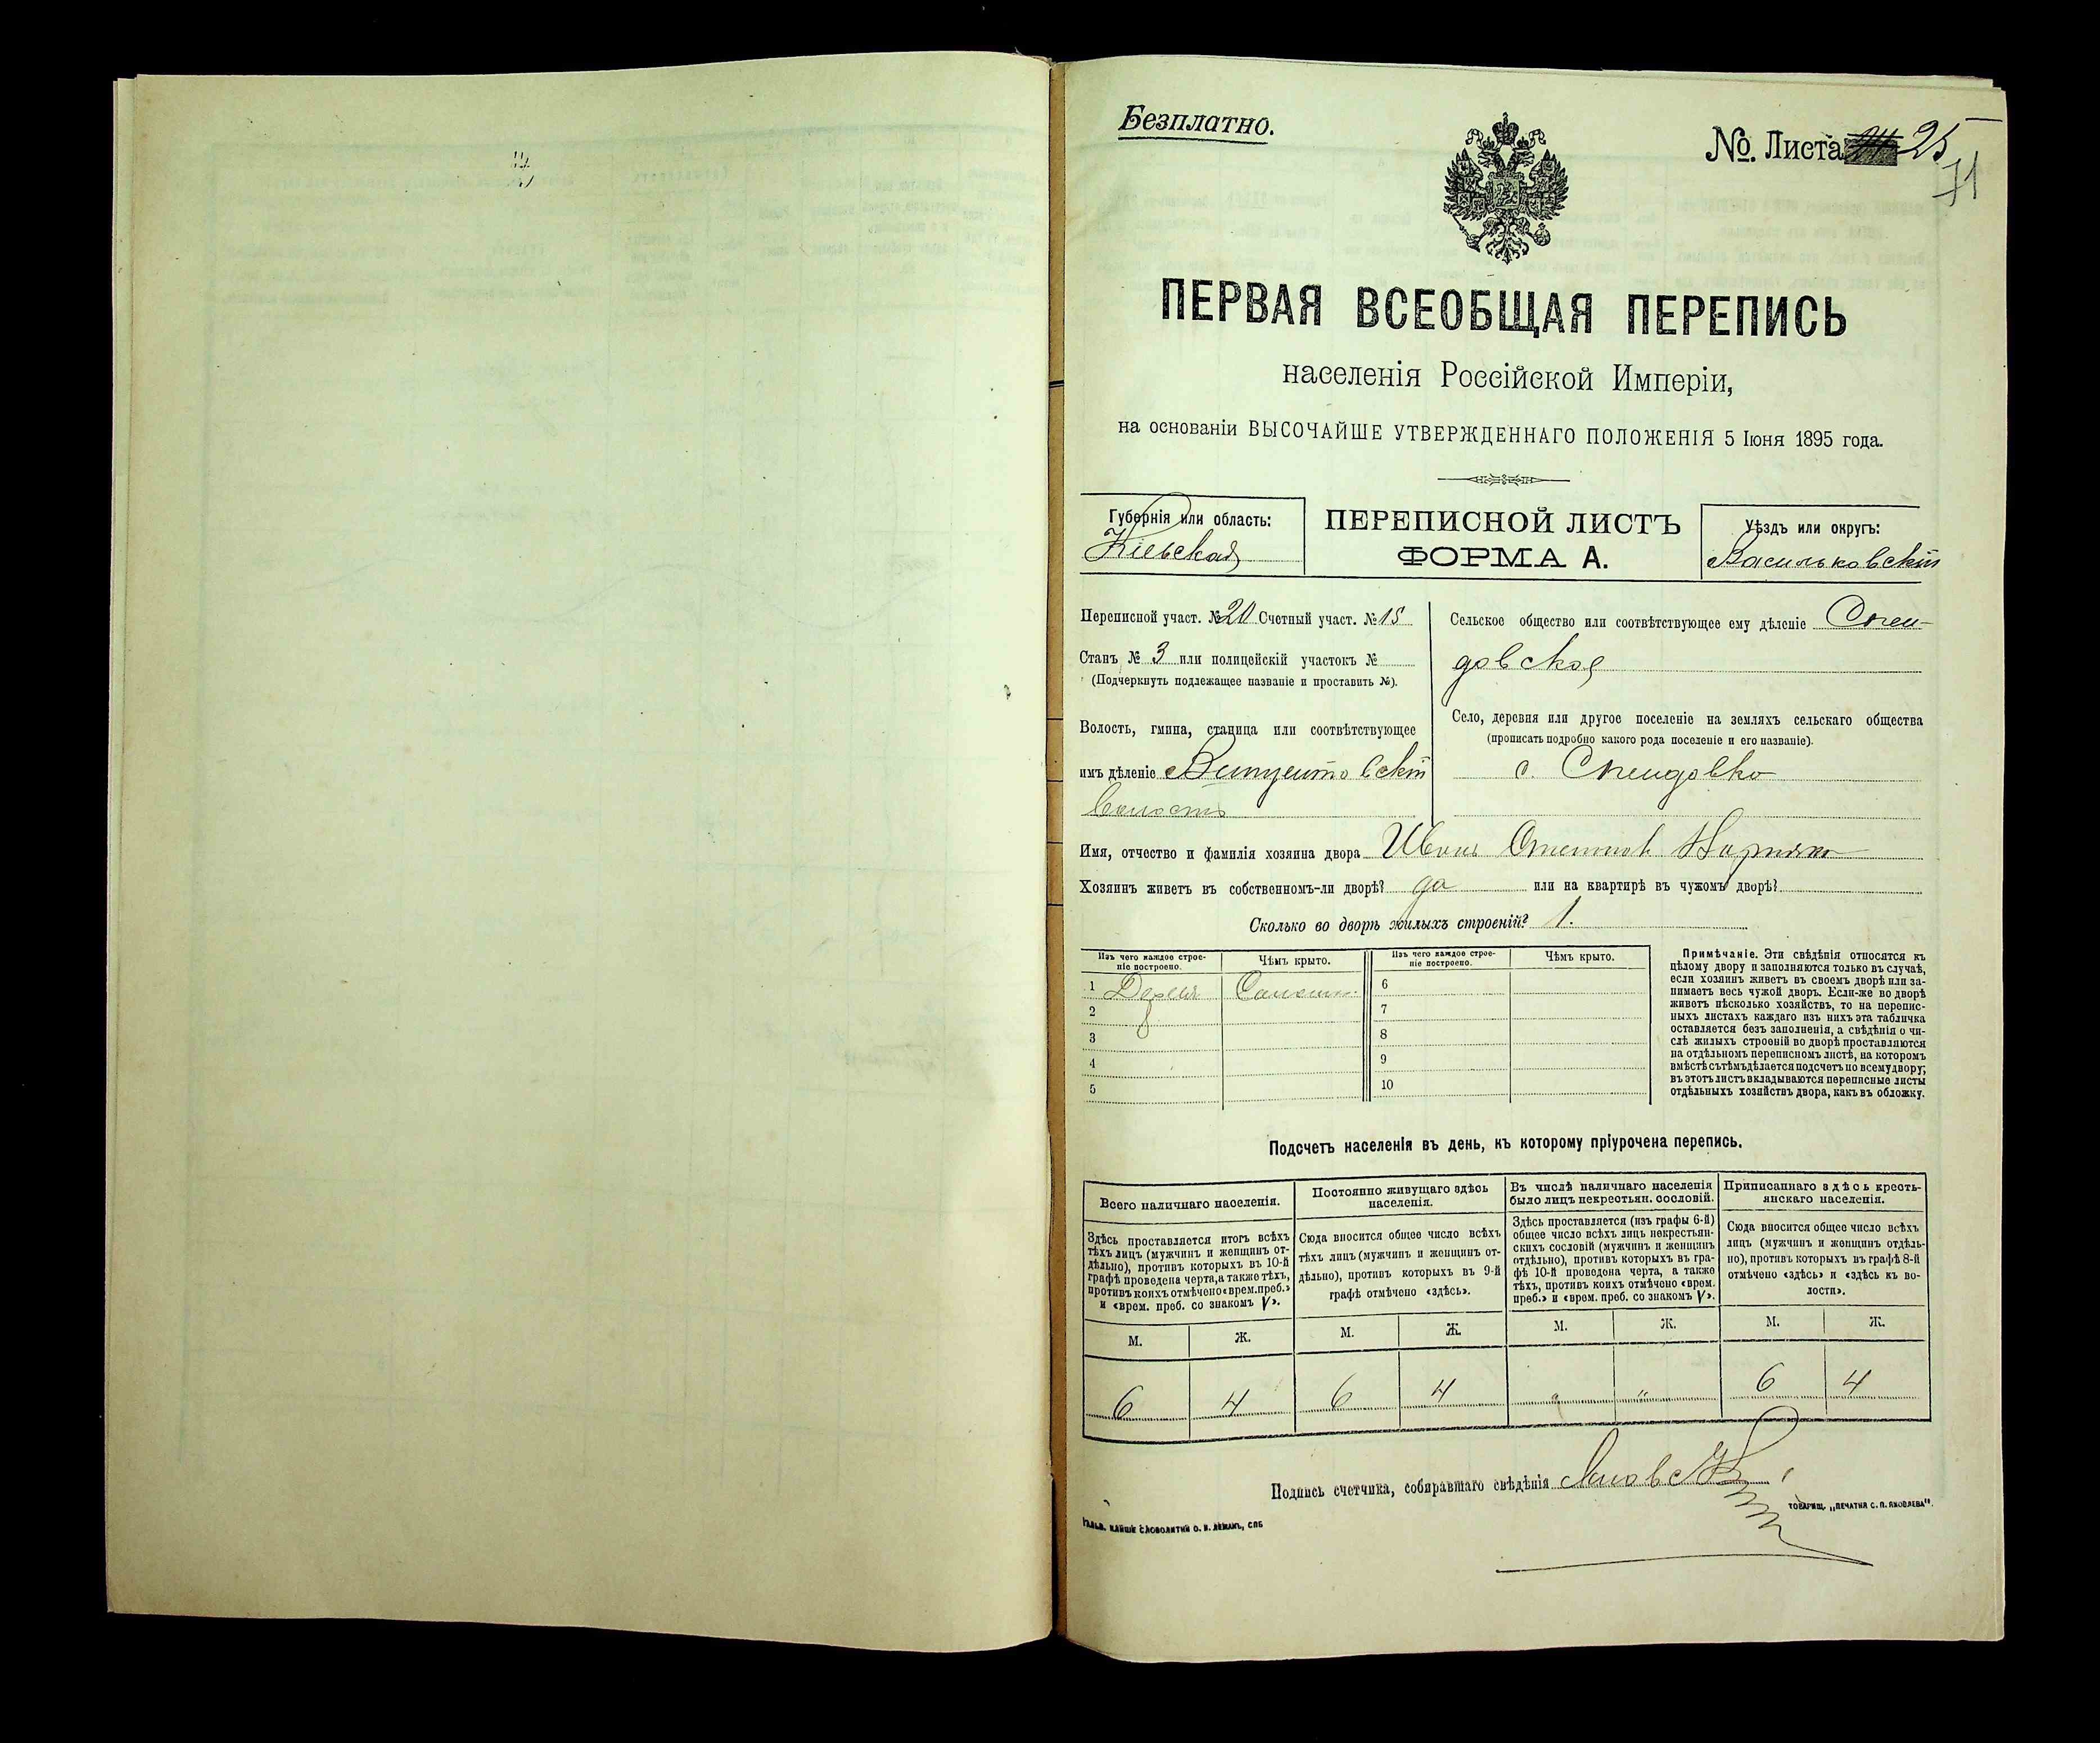 Безплатно.
№. Листа 25
71
ПЕРВАЯ ВСЕОБЩАЯ ПЕРЕПИСЬ
населенія Россійской Имперіи,
на основаніи ВЫСОЧАЙШЕ УТВЕРЖДЕННАГО ПОЛОЖЕНІЯ 5 Іюня 1895 года.
Губернія или область:
Кіевская
ПЕРЕПИСНОЙ ЛИСТЪ
ФОРМА А.
Уѣздъ или округъ:
Васильковскій
Переписной участ. № 20 Счетный участ. № 15
Станъ № 3 или полицейскій участокъ №
(Подчеркнуть подлежащее названіе и проставить №).
Волость, гмина, станица или соотвѣтствующее
имъ дѣленіе
волость
Сельское общество или соотвѣтствующее ему дѣленіе Спен-
довское
Село, деревня или другое поселеніе на земляхъ сельскаго общества
(прописать подробно какого рода поселеніе и его названіе).
с. Спендовка
Имя, отчество и фамилія хозяина двора Иванъ
Хозяинъ живетъ въ собственномъ-ли дворѣ? да или на квартирѣ въ чужомъ дворѣ?
Сколько во дворѣ жилыхъ строеній? 1.
Изъ чего каждое строе-
ніе построено.
Чѣмъ крыто.
Изъ чего каждое строе-
ніе построено.
Чѣмъ крыто.
1 6
2 7
3 8
4 9
5 10
Примѣчаніе. Эти свѣдѣнія относятся къ
цѣлому двору и заполняются только въ случаѣ,
если хозяинъ живетъ въ своемъ дворѣ или за-
нимаетъ весь чужой дворъ. Если-же во дворѣ
живетъ нѣсколько хозяйствъ, то на перепис-
ныхъ листахъ каждаго изъ нихъ эта табличка
оставляется безъ заполненія, а свѣдѣнія о чи-
слѣ жилыхъ строеній во дворѣ проставляются
на отдѣльномъ переписномъ листѣ, на которомъ
вмѣстѣ съ тѣмъ дѣлается подсчетъ по всему двору;
въ этотъ листъ вкладываются переписные листы
отдѣльныхъ хозяйствъ двора, какъ въ обложку.
Подсчетъ населенія въ день, къ которому пріурочена перепись.
Всего наличнаго населенія.
Здѣсь проставляется итогъ всѣхъ
тѣхъ лицъ (мужчинъ и женщинъ от-
дѣльно), противъ которыхъ въ 10-й
графѣ проведена черта, а также тѣхъ,
противъ коихъ отмѣчено «врем. преб.»
и «врем. преб. со знакомъ V».
Постоянно живущаго здѣсь
населенія.
Сюда вносится общее число всѣхъ
тѣхъ лицъ (мужчинъ и женщинъ от-
дѣльно), противъ которыхъ въ 9-й
графѣ отмѣчено «здѣсь».
Въ числѣ наличнаго населенія
было лицъ некрестьян. сословій.
Здѣсь проставляется (изъ графы 6-й)
общее число всѣхъ лицъ некрестьян-
скихъ сословій (мужчинъ и женщинъ
отдѣльно), противъ которыхъ въ гра-
фѣ 10-й проведена черта, а также
тѣхъ, противъ коихъ отмѣчено «врем.
преб.» и «врем. преб. со знакомъ V».
Приписаннаго здѣсь кресть-
янскаго населенія.
Сюда вносится общее число всѣхъ
лицъ (мужчинъ и женщинъ отдѣль-
но), противъ которыхъ въ графѣ 8-й
отмѣчено «здѣсь» и «здѣсь къ во-
лости».
М. Ж. М. Ж. М. Ж. М. Ж.
6 4 6 4 " " 6 4
Подпись счетчика, собиравшаго свѣдѣнія
ТОВАРИЩ. „ПЕЧАТНЯ С. П. ЯКОВЛЕВА".
СЛОВОЛИТНИ О. И. ЛЕМАНЪ, СПБ